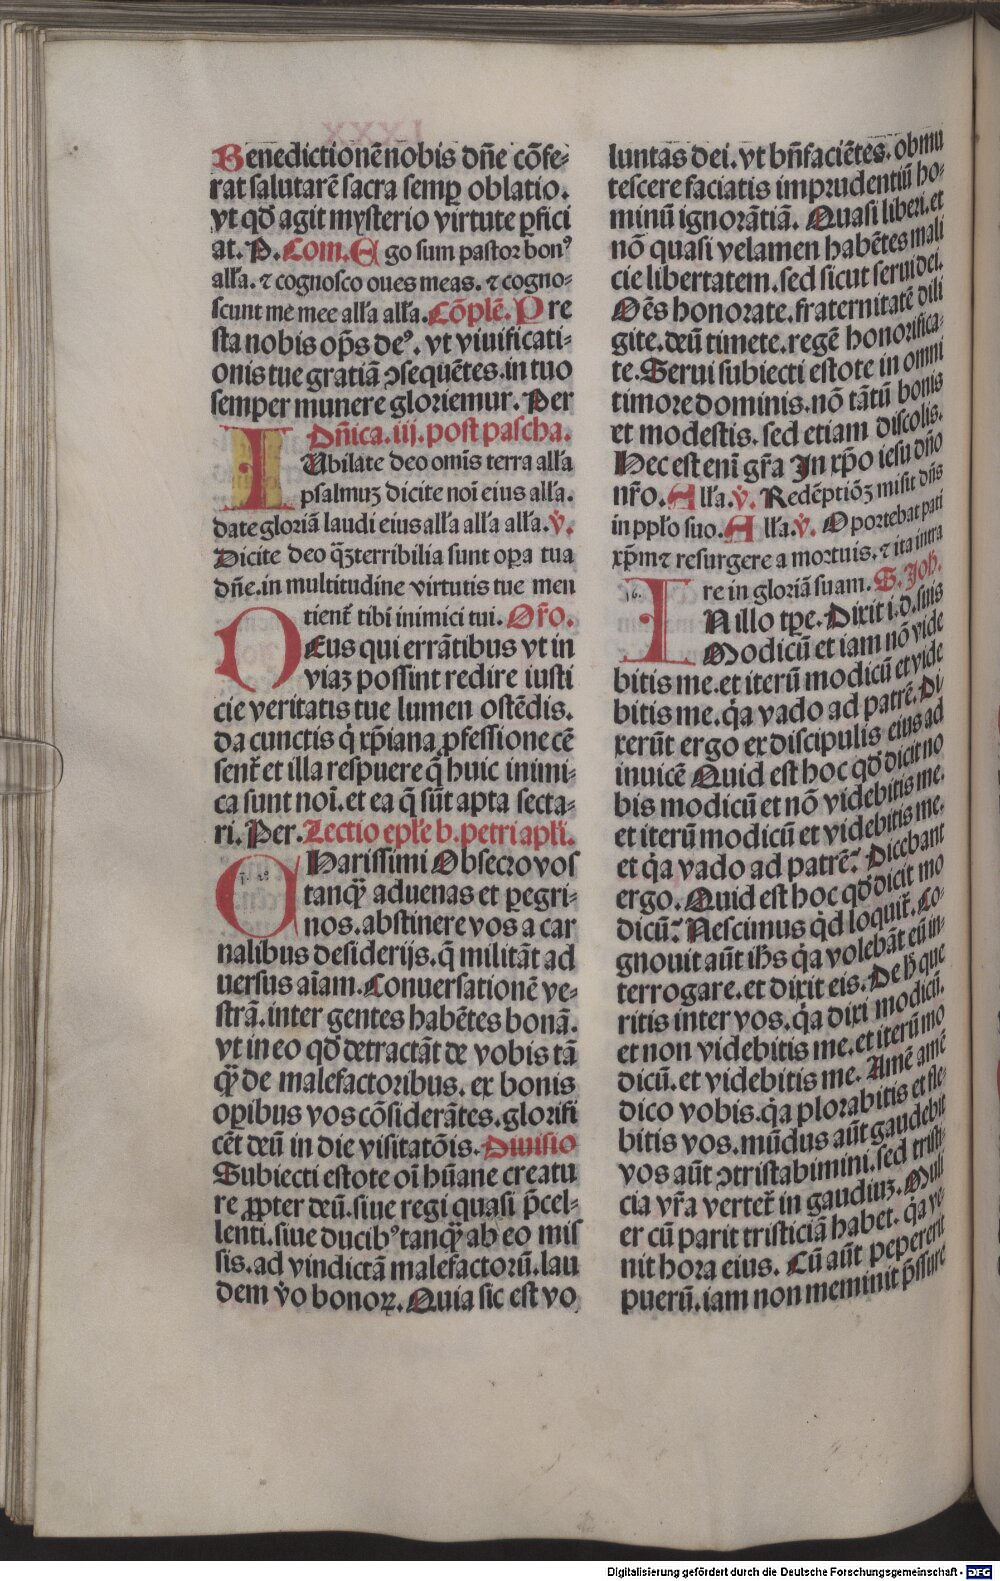 Benedictionē nobis dn̄e cōfe-
rat salutarē sacra semꝑ oblatio.
vt qd̄ agit mysterio virtute ꝑfici
at. P. Com. Ego sum pastor bonꝰ
alła. ⁊ cognosco oues meas. ⁊ cogno-
scunt me mee alła alła. Cōplē. Pre
sta nobis op̄s deꝰ. vt viuificati-
onis tue gratiā ↄsequētes. in tuo
semper munere gloriemur. Per
Dn̄ica. iij. post pascha.
IUbilate deo omīs terra alła
psalmuꝫ dicite noī eius alła.
date gloriā laudi eius alła alła alła. v̇.
Dicite deo q̄ꝫ terribilia sunt oꝑa tua
dn̄e. in multitudine virtutis tue men
tient᷑ tibi inimici tui. Or̄o.
DEus qui errātibus vt in
viaꝫ possint redire iusti
cie veritatis tue lumen ostēdis.
da cunctis q̇ xp̄iana ꝓfessione cē
sent᷑ et illa respuere q̄ huic inimi-
ca sunt noī. et ea q̄ sūt apta secta-
ri. Per. Lectio epłe b. petri apłi.
CHarissimi Obsecro vos
tanqȝ aduenas et ꝑegri-
nos. abstinere vos a car
nalibus desiderijs. q̄ militāt ad
uersus aīam. Conuersationē ve-
strā. inter gentes habētes bonā.
vt in eo qd̄ detractāt de vobis tā
qȝ de malefactoribus. ex bonis
oꝑibus vos cōsiderātes. glorifi
cēt deū in die visitatōis. Diuisio
Subiecti estote oī hūane creatu
re ꝓpter deū. siue regi quasi p̄cel-
lenti. siue ducibꝰ tanqȝ ab eo mis
sis. ad vindictā malefactorū. lau
dem v̇o bonoꝝ. Quia sic est vo
luntas dei. vt bn̄faciētes. obmu
tescere faciatis imprudentiū ho-
minū ignorātiā. Quasi liberi. et
nō quasi velamen habētes mali
cie libertatem. sed sicut serui dei.
Oēs honorate. fraternitatē dili
gite. deū timete. regē honorifica-
te. Serui subiecti estote in omni
timore dominis. nō tātū bonis
et modestis. sed etiam discolis.
Hec est enī gr̄a In xp̄o iesu dn̄o
nr̄o. Alła. v̇. Redēptiōꝫ misit dn̄s
in ppło suo. Alła. v̇. Oportebat pati
xp̄m ⁊ resurgere a mortuis. ⁊ ita intra
re in gloriā suam. S. Joh.
IN illo tꝑe. Dixit i. d. suis
Modicū et iam nō vide
bitis me. et iterū modicū et vide
bitis me. q̇a vado ad patrē. Di
xerūt ergo ex discipulis eius ad
inuicē Quid est hoc qd̄ dicit no
bis modicū et nō videbitis me.
et iterū modicū et videbitis me.
et q̇a vado ad patrē? Dicebant
ergo. Quid est hoc qd̄ dicit mo
dicū? Nescimus q̇d loquit᷑. Co-
gnouit aūt ihs̄ q̇a volebāt eū in-
terrogare. et dixit eis. De h̄ que
ritis inter vos. q̇a dixi modicū.
et non videbitis me. et iterū mo
dicū. et videbitis me. Amē amē
dico vobis. q̇a plorabitis et fle-
bitis vos. mūdus aūt gaudebit
vos aūt ↄtristabimini. sed tristi-
cia vr̄a vertet᷑ in gaudiuꝫ. Muli
er cū parit tristiciā habet. q̇a ve-
nit hora eius. Cū aūt pepererit
puerū. iam non meminit p̄ssure
Digitalisierung gefördert durch die Deutsche Forschungsgemeinschaft - DFG